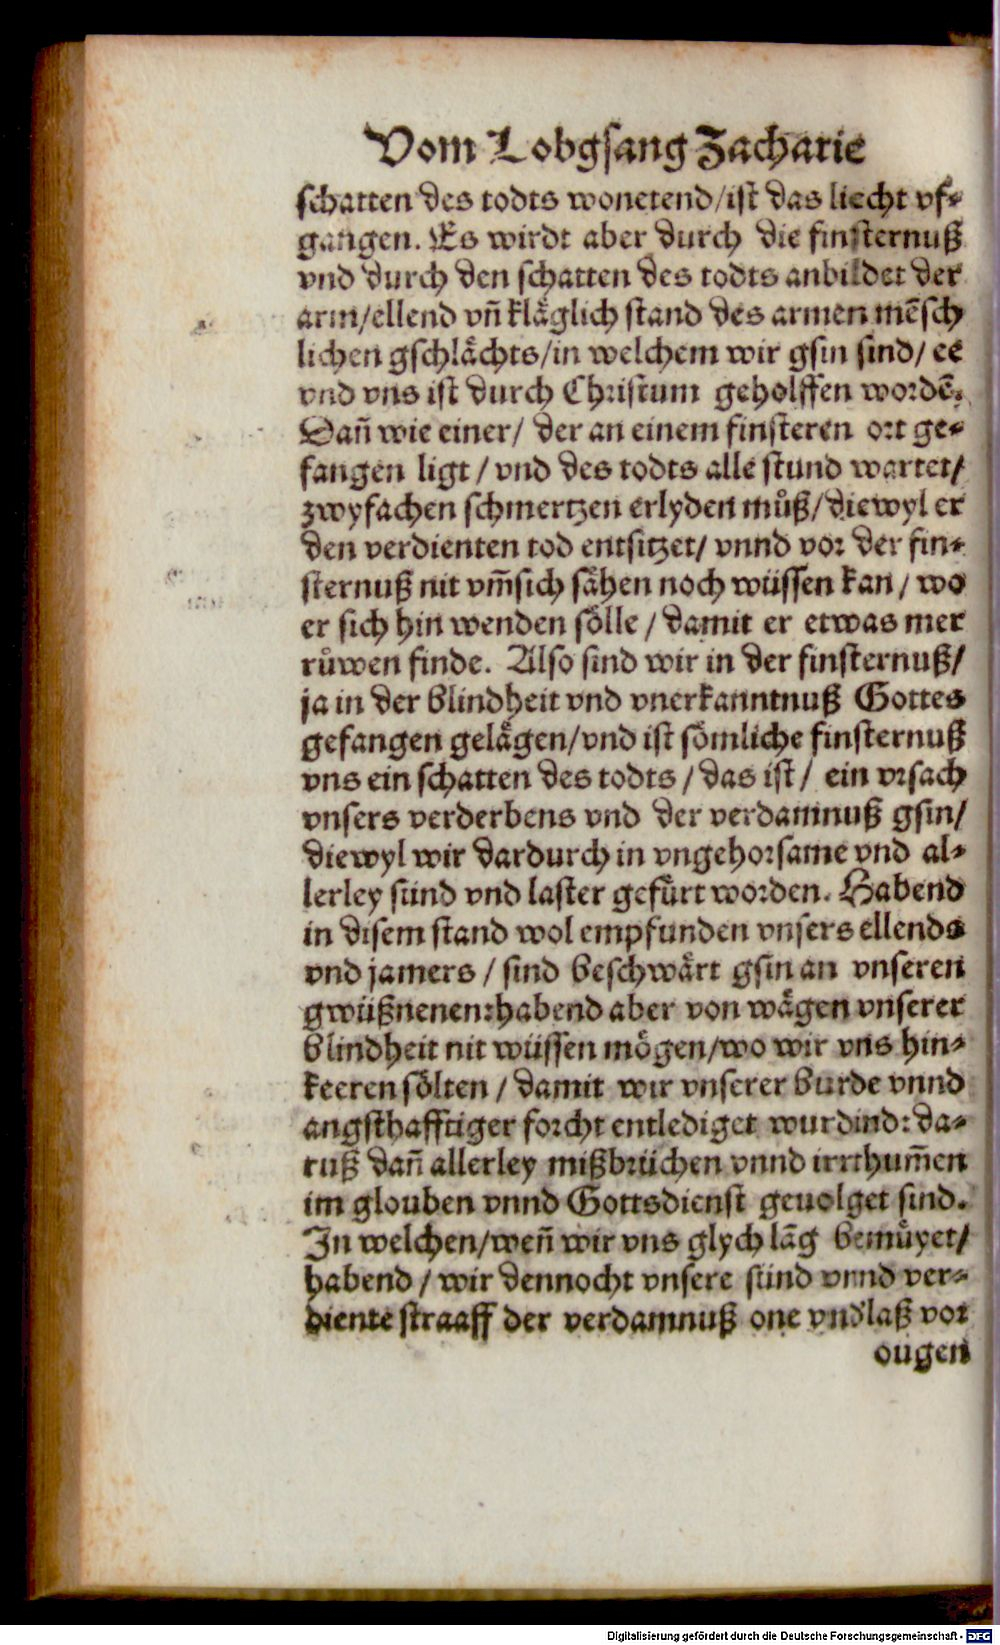 Vom Lobgsang Zacharie
schatten des todts wonetend/ist das liecht vf-
gangen. Es wirdt aber durch die finsternuß
vnd durch den schatten des todts anbildet der
arm/ellend vñ kläglich stand des armen mẽsch
lichen gschlächts/in welchem wir gsin sind/ ee
vnd vns ist durch Christum geholffen wordẽ.
Dañ wie einer/ der an einem finsteren ort ge-
fangen ligt / vnd des todts alle stund wartet/
zwyfachen schmertzen erlyden můß/diewyl er
den verdienten tod entsitzet/ vnnd vor der fin-
sternuß nit vm̃sich sähen noch wüssen kan / wo
er sich hin wenden sölle / damit er etwas mer
růwen finde. Also sind wir in der finsternuß/
ja in der blindheit vnd vnerkanntnuß Gottes
gefangen gelägen/vnd ist sömliche finsternuß
vns ein schatten des todts / das ist / ein vrsach
vnsers verderbens vnd der verdamnuß gsin/
diewyl wir dardurch in vngehorsame vnd al-
lerley sünd vnd laster gefürt worden. Habend
in disem stand wol empfunden vnsers ellends
vnd jamers / sind beschwärt gsin an vnseren
gwüßnenen:habend aber von wägen vnserer
blindheit nit wüssen mögen/wo wir vns hin-
keeren sölten / damit wir vnserer burde vnnd
angsthafftiger forcht entlediget wurdind: da-
ruß dañ allerley mißbrüchen vnnd irrthum̃en
im glouben vnnd Gottsdienst geuolget sind.
In welchen/weñ wir vns glych lãg bemüyet/
habend / wir dennocht vnsere sünd vnnd ver-
diente straaff der verdamnuß one vndlaß vor
ougen
Digitalisierung gefördert durch die Deutsche Forschungsgemeinschaft - DFG